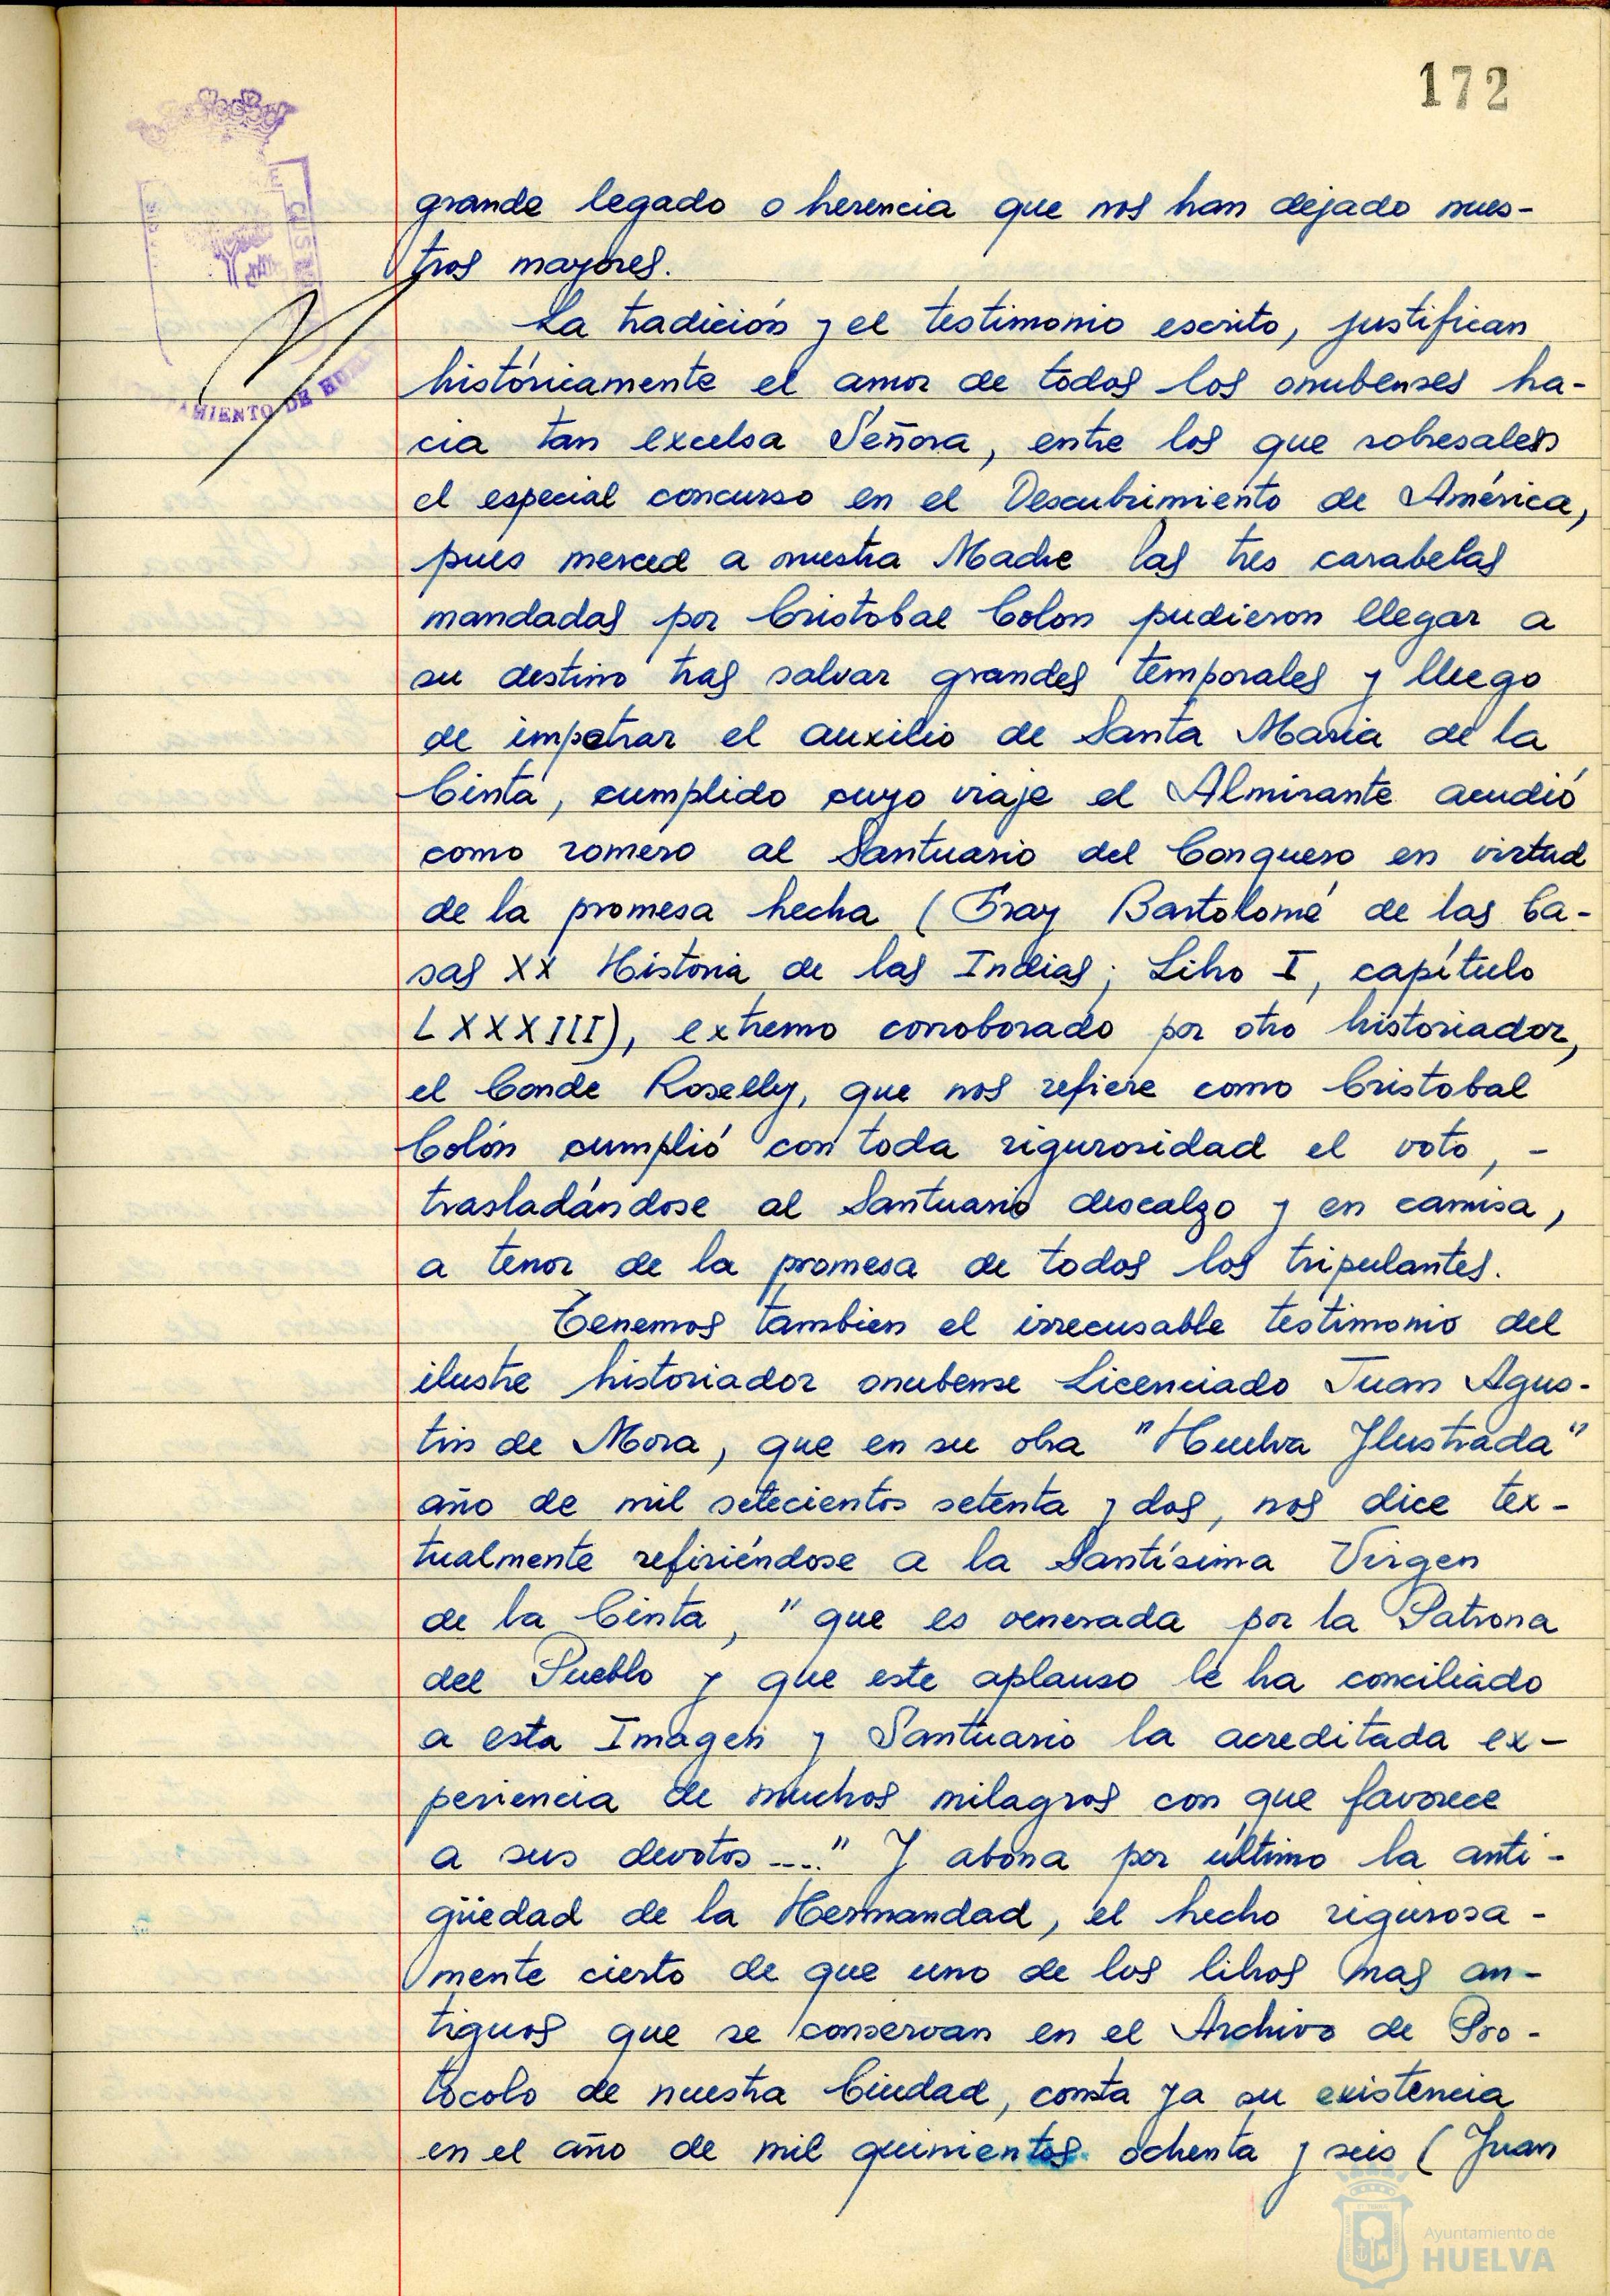 172
grande legado o herencia que nos han dejado nues-
tros mayores.
La tradición y el testimonio escrito, justifican
históricamente el amor de todos los onubenses ha-
cia tan excelsa Señora, entre los que sobresalen
el especial concurso en el Descubrimiento de América,
pues merced a nuestra Madre las tres carabelas
mandadas por Cristobal Colon pudieron llegar a
su destino tras salvar grandes temporales y lluego
de impetrar el auxilio de Santa Maria de la
Cinta, cumplido cuyo viaje el Almirante acudió
como romero al Santuario del Conquero en virtud
de la promesa hecha (Fray Bartolomé de las Ca-
sas XX Historia de las Indias; Libro I, capítulo
LXXXIII), extremo corroborado por otro historiador,
el Conde Roselly, que nos refiere como Cristobal
Colón cumplió con toda rigurosidad el voto, -
trasladándose al Santuario descalzo y en camisa,
a tenor de la promesa de todos los tripulantes.
Tenemos tambien el irrecusable testimonio del
ilustre historiador onubense Licenciado Juan Agus-
tin de Mora, que en su obra "Huelva Ilustrada"
año de mil setecientos setenta y dos, nos dice tex-
tualmente refiriéndose a la Santísima Virgen
de la Cinta, "que es venerada por la Patrona
del Pueblo y que este aplauso le ha conciliado
a esta Imagen y Santuario la acreditada ex-
periencia de muchos milagros con que favorece
a sus devotos ...." Y abona por último la anti-
güedad de la Hermandad, el hecho rigurosa-
mente cierto de que uno de los libros mas an-
tiguos que se conservan en el Archivo de Pro-
tocolo de nuestra Ciudad, consta ya su existencia
en el año de mil quinientos ochenta y seis (Juan
AMIENTO DE HUE
Ayuntamiento de
HUELVA